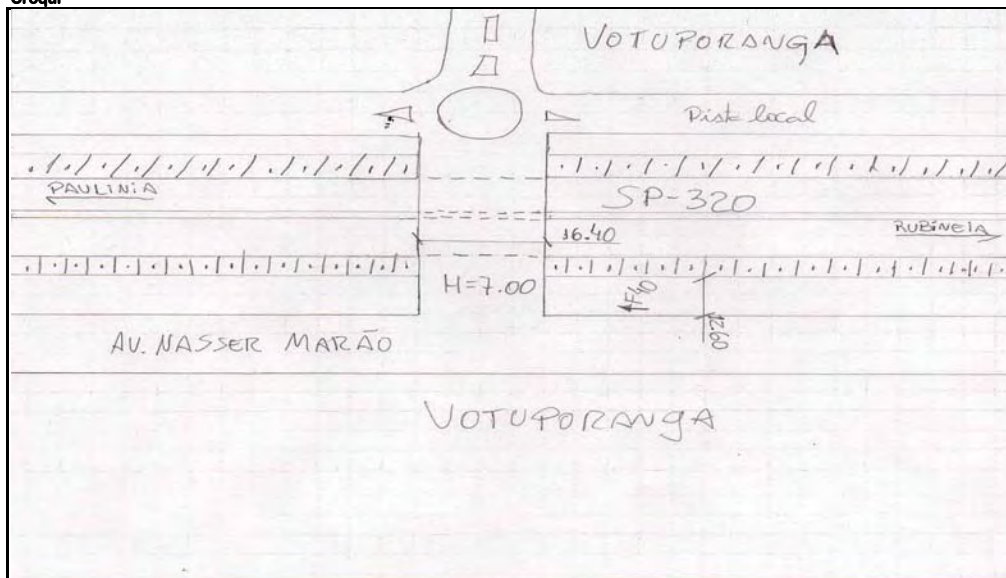 Croqui
VOTUPORANGA
Pista local
PAULINIA
SP-320
16.40
RUBINEIA
H=7.00
F40
1260
AV. NASSER MARÃO
VOTUPORANGA